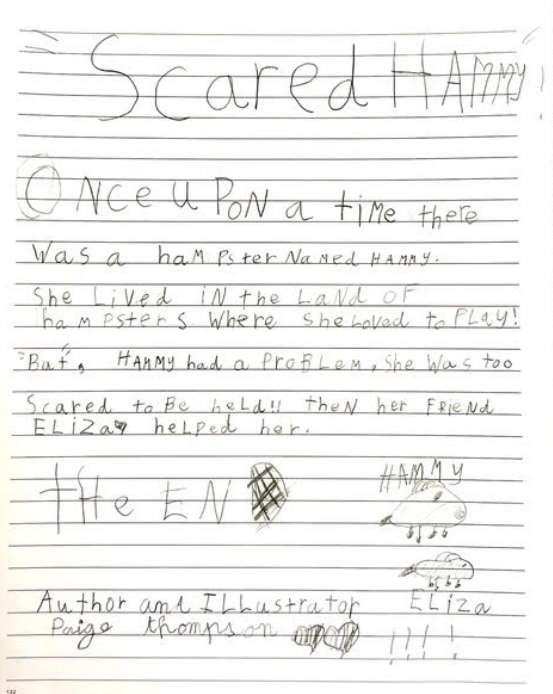 Scared HAMMY
ONce uPoN a tiMe there
Was a haMPster NaMed HAMMY.
She LiVed iN the LaNd oF
haMPsters Where she Loved to PLay!
"But", HAMMY had a ProBLeM, She Was too
Scared to Be heLd!! theN her FRieNd
ELiZa heLPed her.
tHe END
HAMMY
ELiza
Author and ILLustrator
Paige thompson
!!!!
132